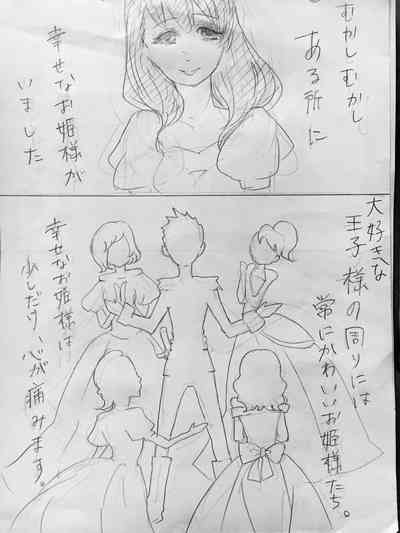 むかしむかし
ある所に
幸せなお姫様が
いました
大好きな
王子様の周りには
常にかわいいお姫様たち。
幸せなお姫様は
少しだけ、心が痛みます。